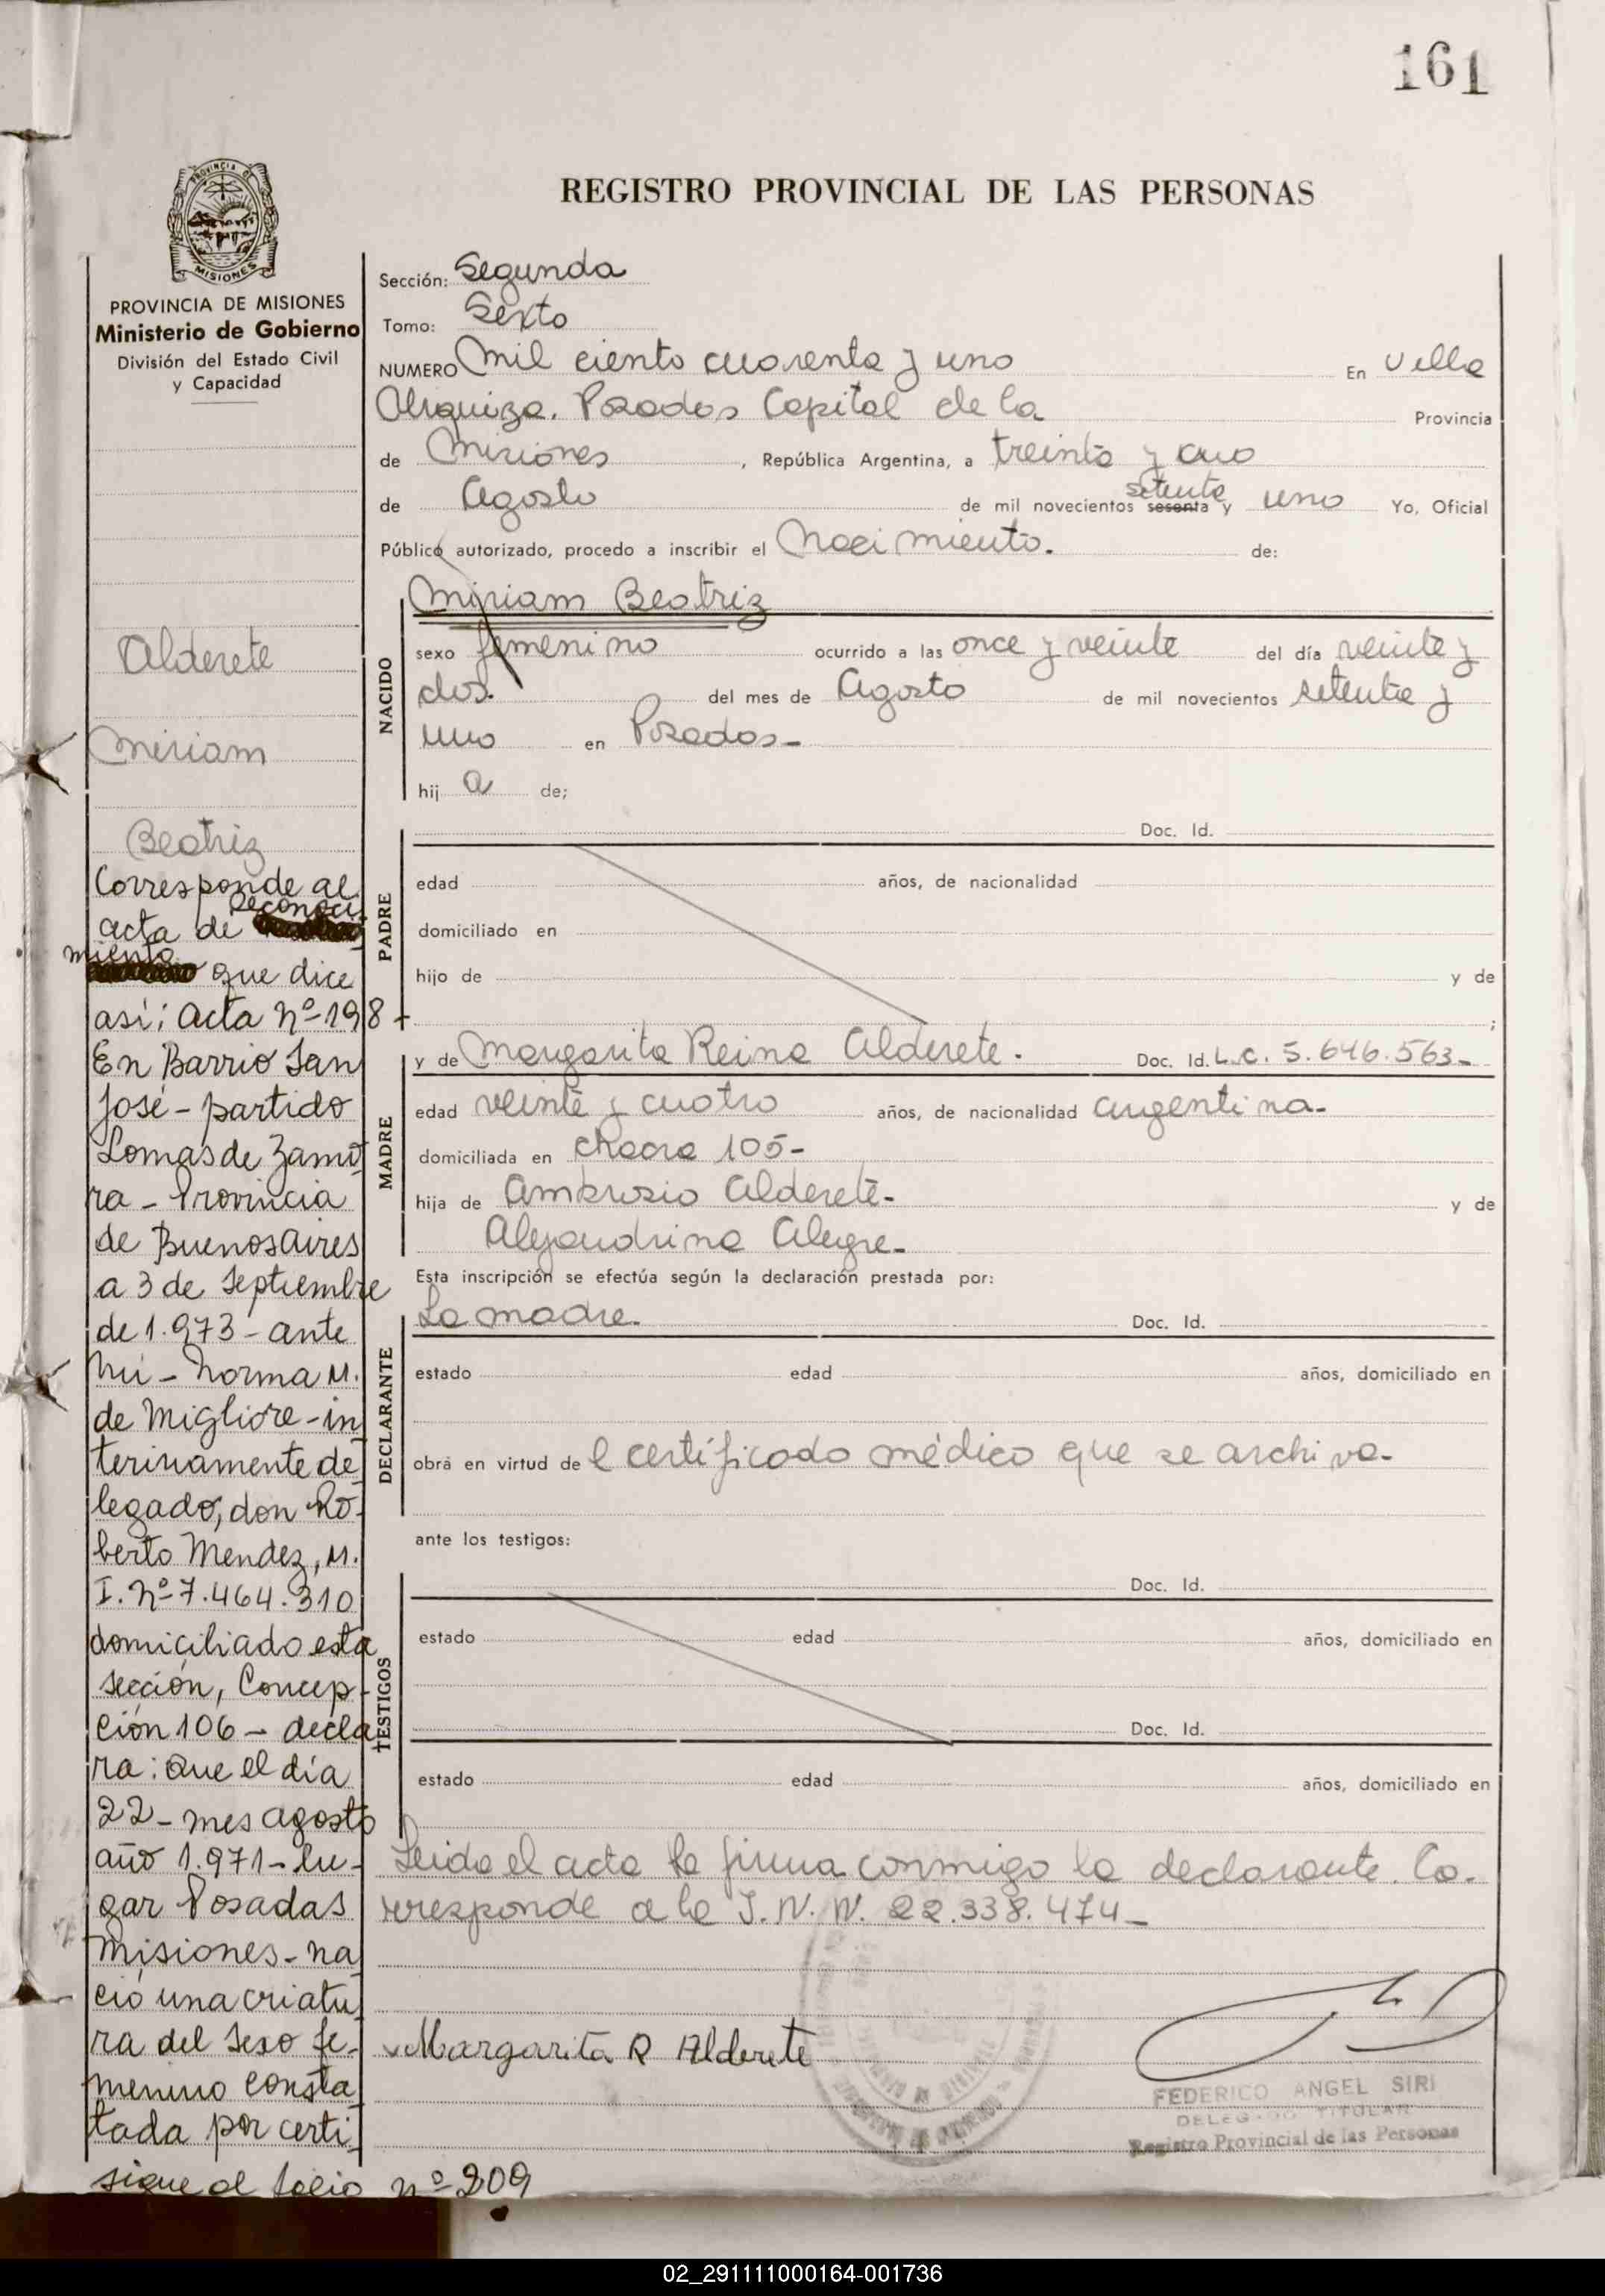 161
REGISTRO PROVINCIAL DE LAS PERSONAS
PROVINCIA DE MISIONES
Ministerio de Gobierno
División del Estado Civil
y Capacidad
Alderete
Miriam
Beatriz
Corresponde al
acta de reconoci
miento que dice
así: acta nº 198
En Barrio San
José - partido
Lomas de Zamo
ra - Provincia
de Buenos Aires
a 3 de Septiembre
de 1.973 - ante
mi - Norma M.
de Migliore - in
terinamente de
legado, don Ro-
berto Mendez, M.
I. nº 7.464.310
domiciliado esta
sección, Concep-
ción 106 - decla
ra: que el día
22 - mes agosto
año 1.971 - lu-
gar Posadas
misiones - na
ció una criatu
ra del sexo fe-
menino consta
tada por certi
sigue al folio nº 209
Sección: Segunda
Tomo: Sexto
NUMERO Mil ciento cuarenta y uno En Villa
Urquiza. Posadas Capital de la Provincia
de Misiones, República Argentina, a treinta y uno
de Agosto de mil novecientos setenta sesenta y uno Yo, Oficial
Público autorizado, procedo a inscribir el Nacimiento. de:
NACIDO
Miriam Beatriz
sexo femenino ocurrido a las once y veinte del día veinte y
dos. del mes de Agosto de mil novecientos setenta y
uno en Posadas-
hij a de;
PADRE
Doc. Id.
edad años, de nacionalidad
domiciliado en
hijo de y de
;
MADRE
y de Margarita Reina Alderete. Doc. Id. L.C. 5.646.563-
edad veinte y cuatro años, de nacionalidad argentina-
domiciliada en Chacra 105-
hija de Ambrosio Alderete- y de
Alejandrina Alegre-
Esta inscripción se efectúa según la declaración prestada por:
DECLARANTE
La madre. Doc. Id.
estado edad años, domiciliado en
obra en virtud de l certificado médico que se archiva-
ante los testigos:
TESTIGOS
Doc. Id.
estado edad años, domiciliado en
Doc. Id.
estado edad años, domiciliado en
Leida el acta la firma conmigo la declarante. Co-
rresponde a la I.N.N. 22.338.474-
Margarita R Alderete
FEDERICO ANGEL SIRI
DELEGADO TITULAR
Registro Provincial de las Personas
02_291111000164-001736